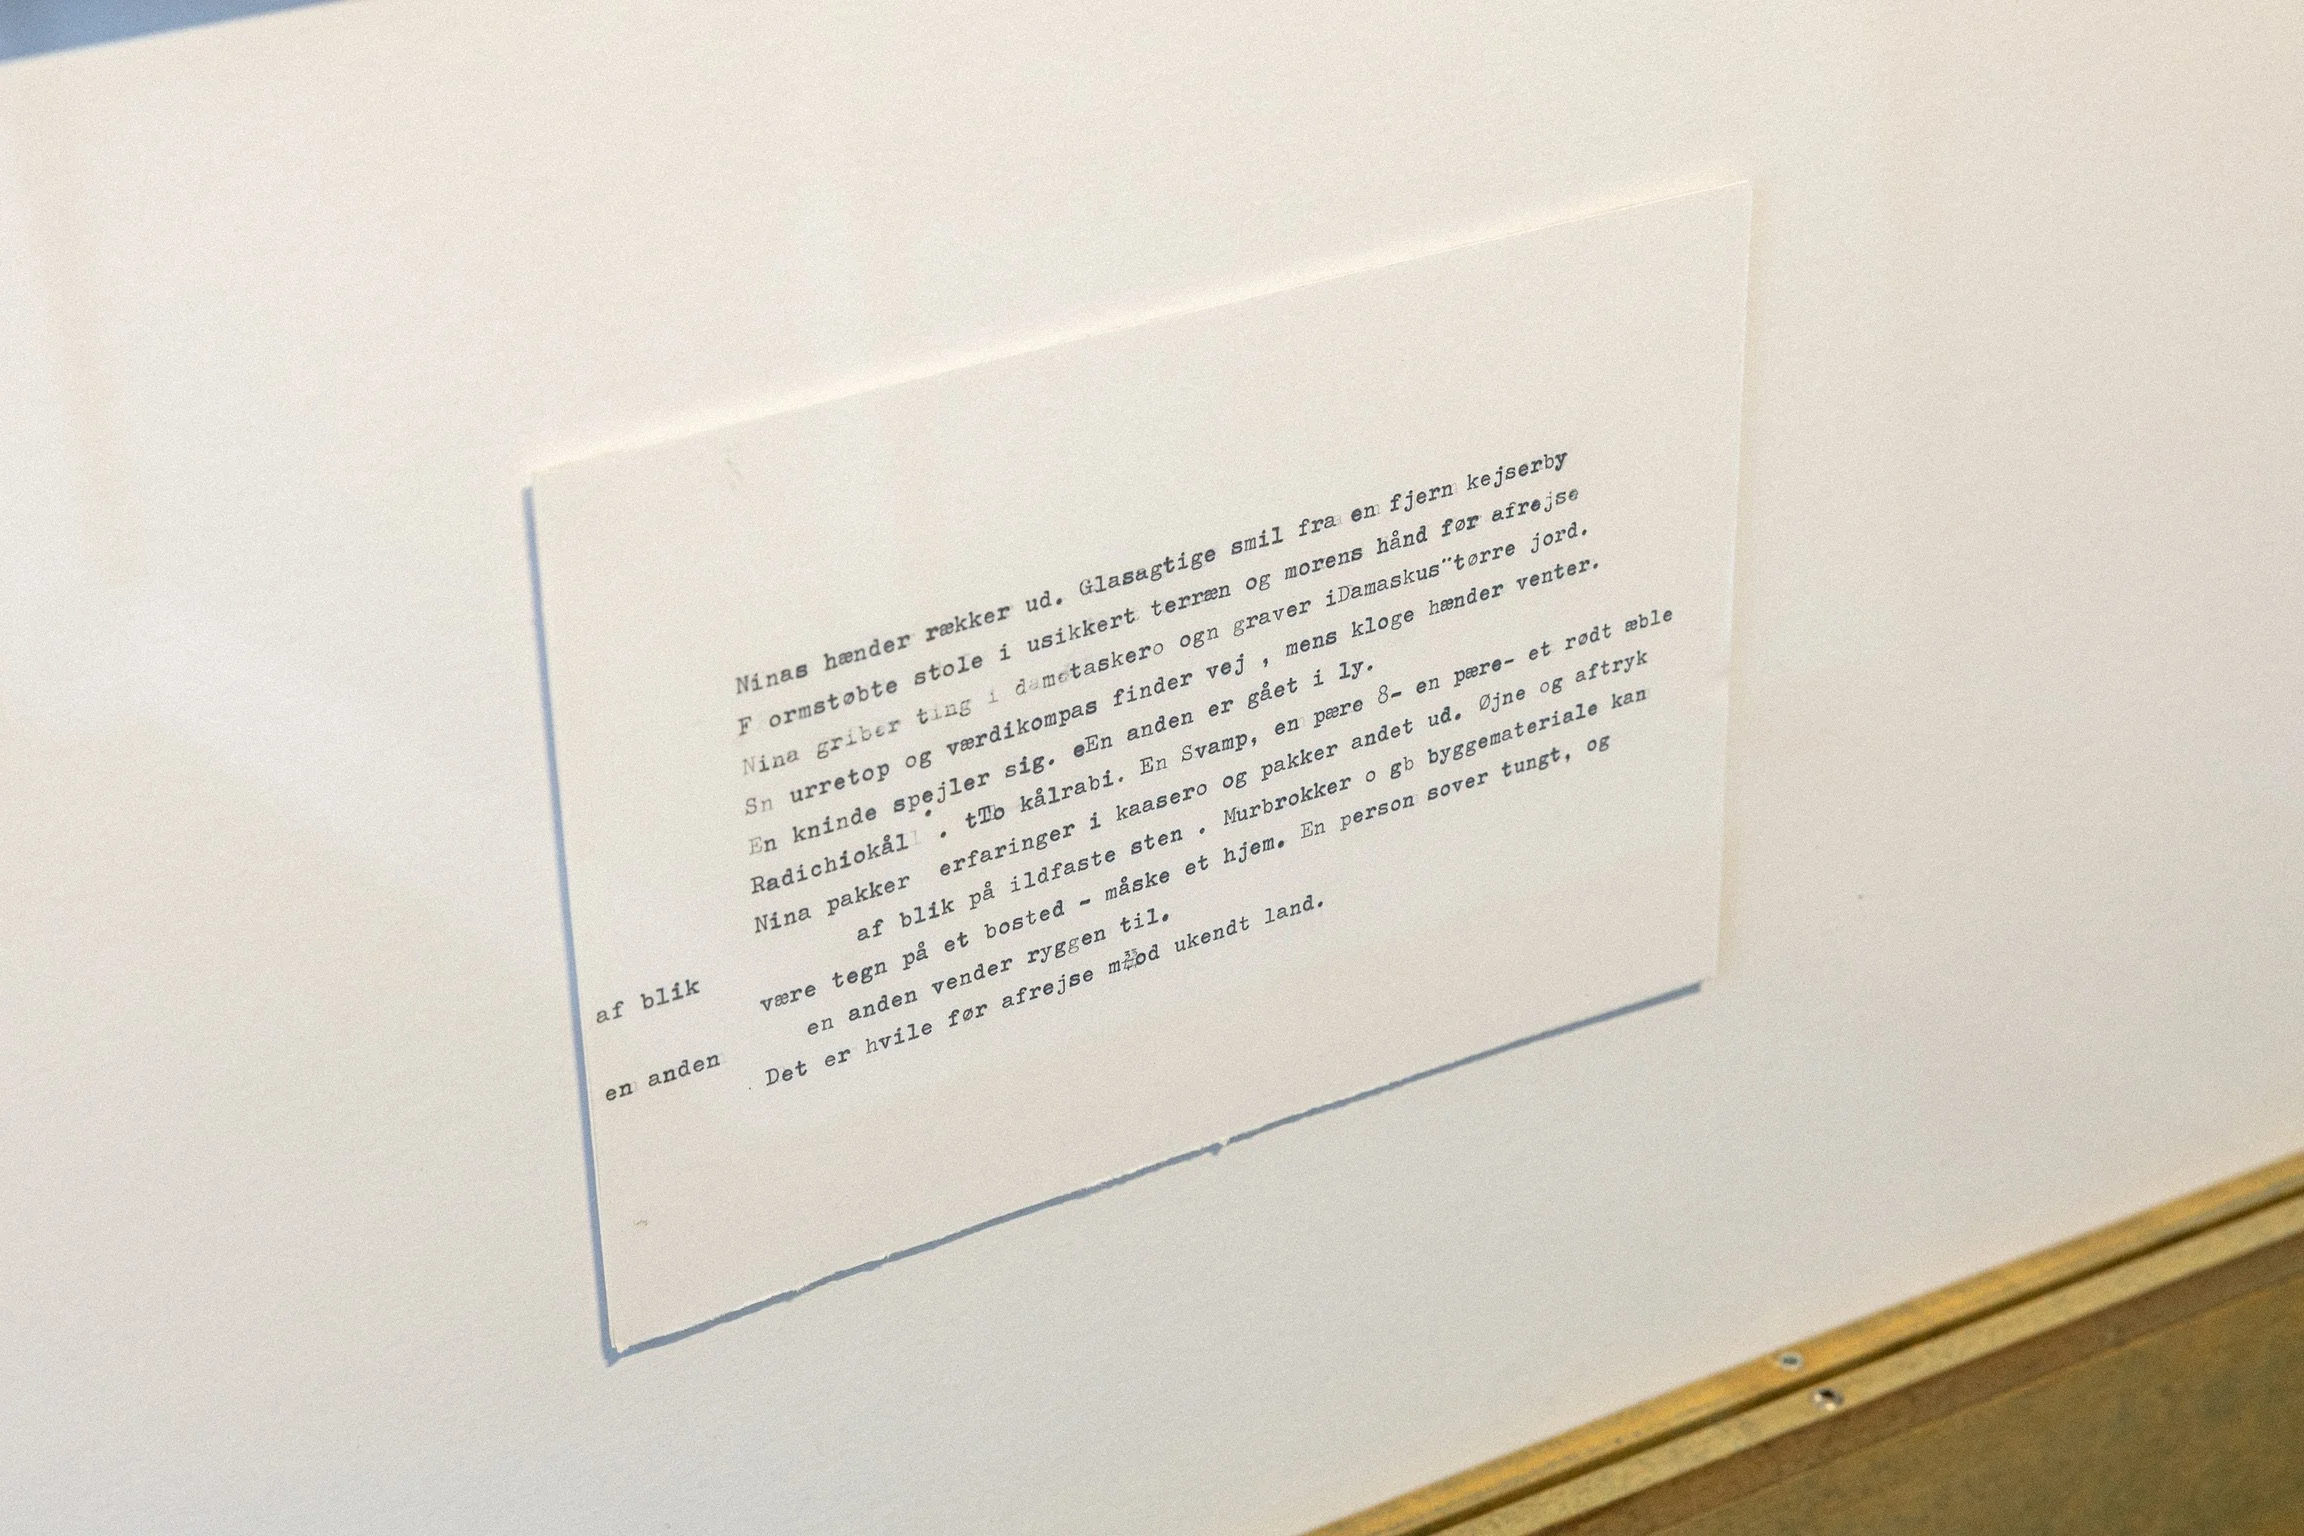 Ninas hænder rækker ud. Glasagtige smil fra en fjern kejserby
F ormstøbte stole i usikkert terræn og morens hånd før afrejse
Nina griber ting i dametaskero ogn graver iDamaskus¨tørre jord.
Sn urretop og værdikompas finder vej , mens kloge hænder venter.
En kninde spejler sig. eEn anden er gået i ly.
Radichiokål . tTo kålrabi. En Svamp, en pære 8- en pære- et rødt æble
Nina pakker erfaringer i kaasero og pakker andet ud. Øjne og aftryk
af blik af blik på ildfaste sten . Murbrokker o gb byggemateriale kan
være tegn på et bosted - måske et hjem. En person sover tungt, og
en anden en anden vender ryggen til.
Det er hvile før afrejse mod ukendt land.